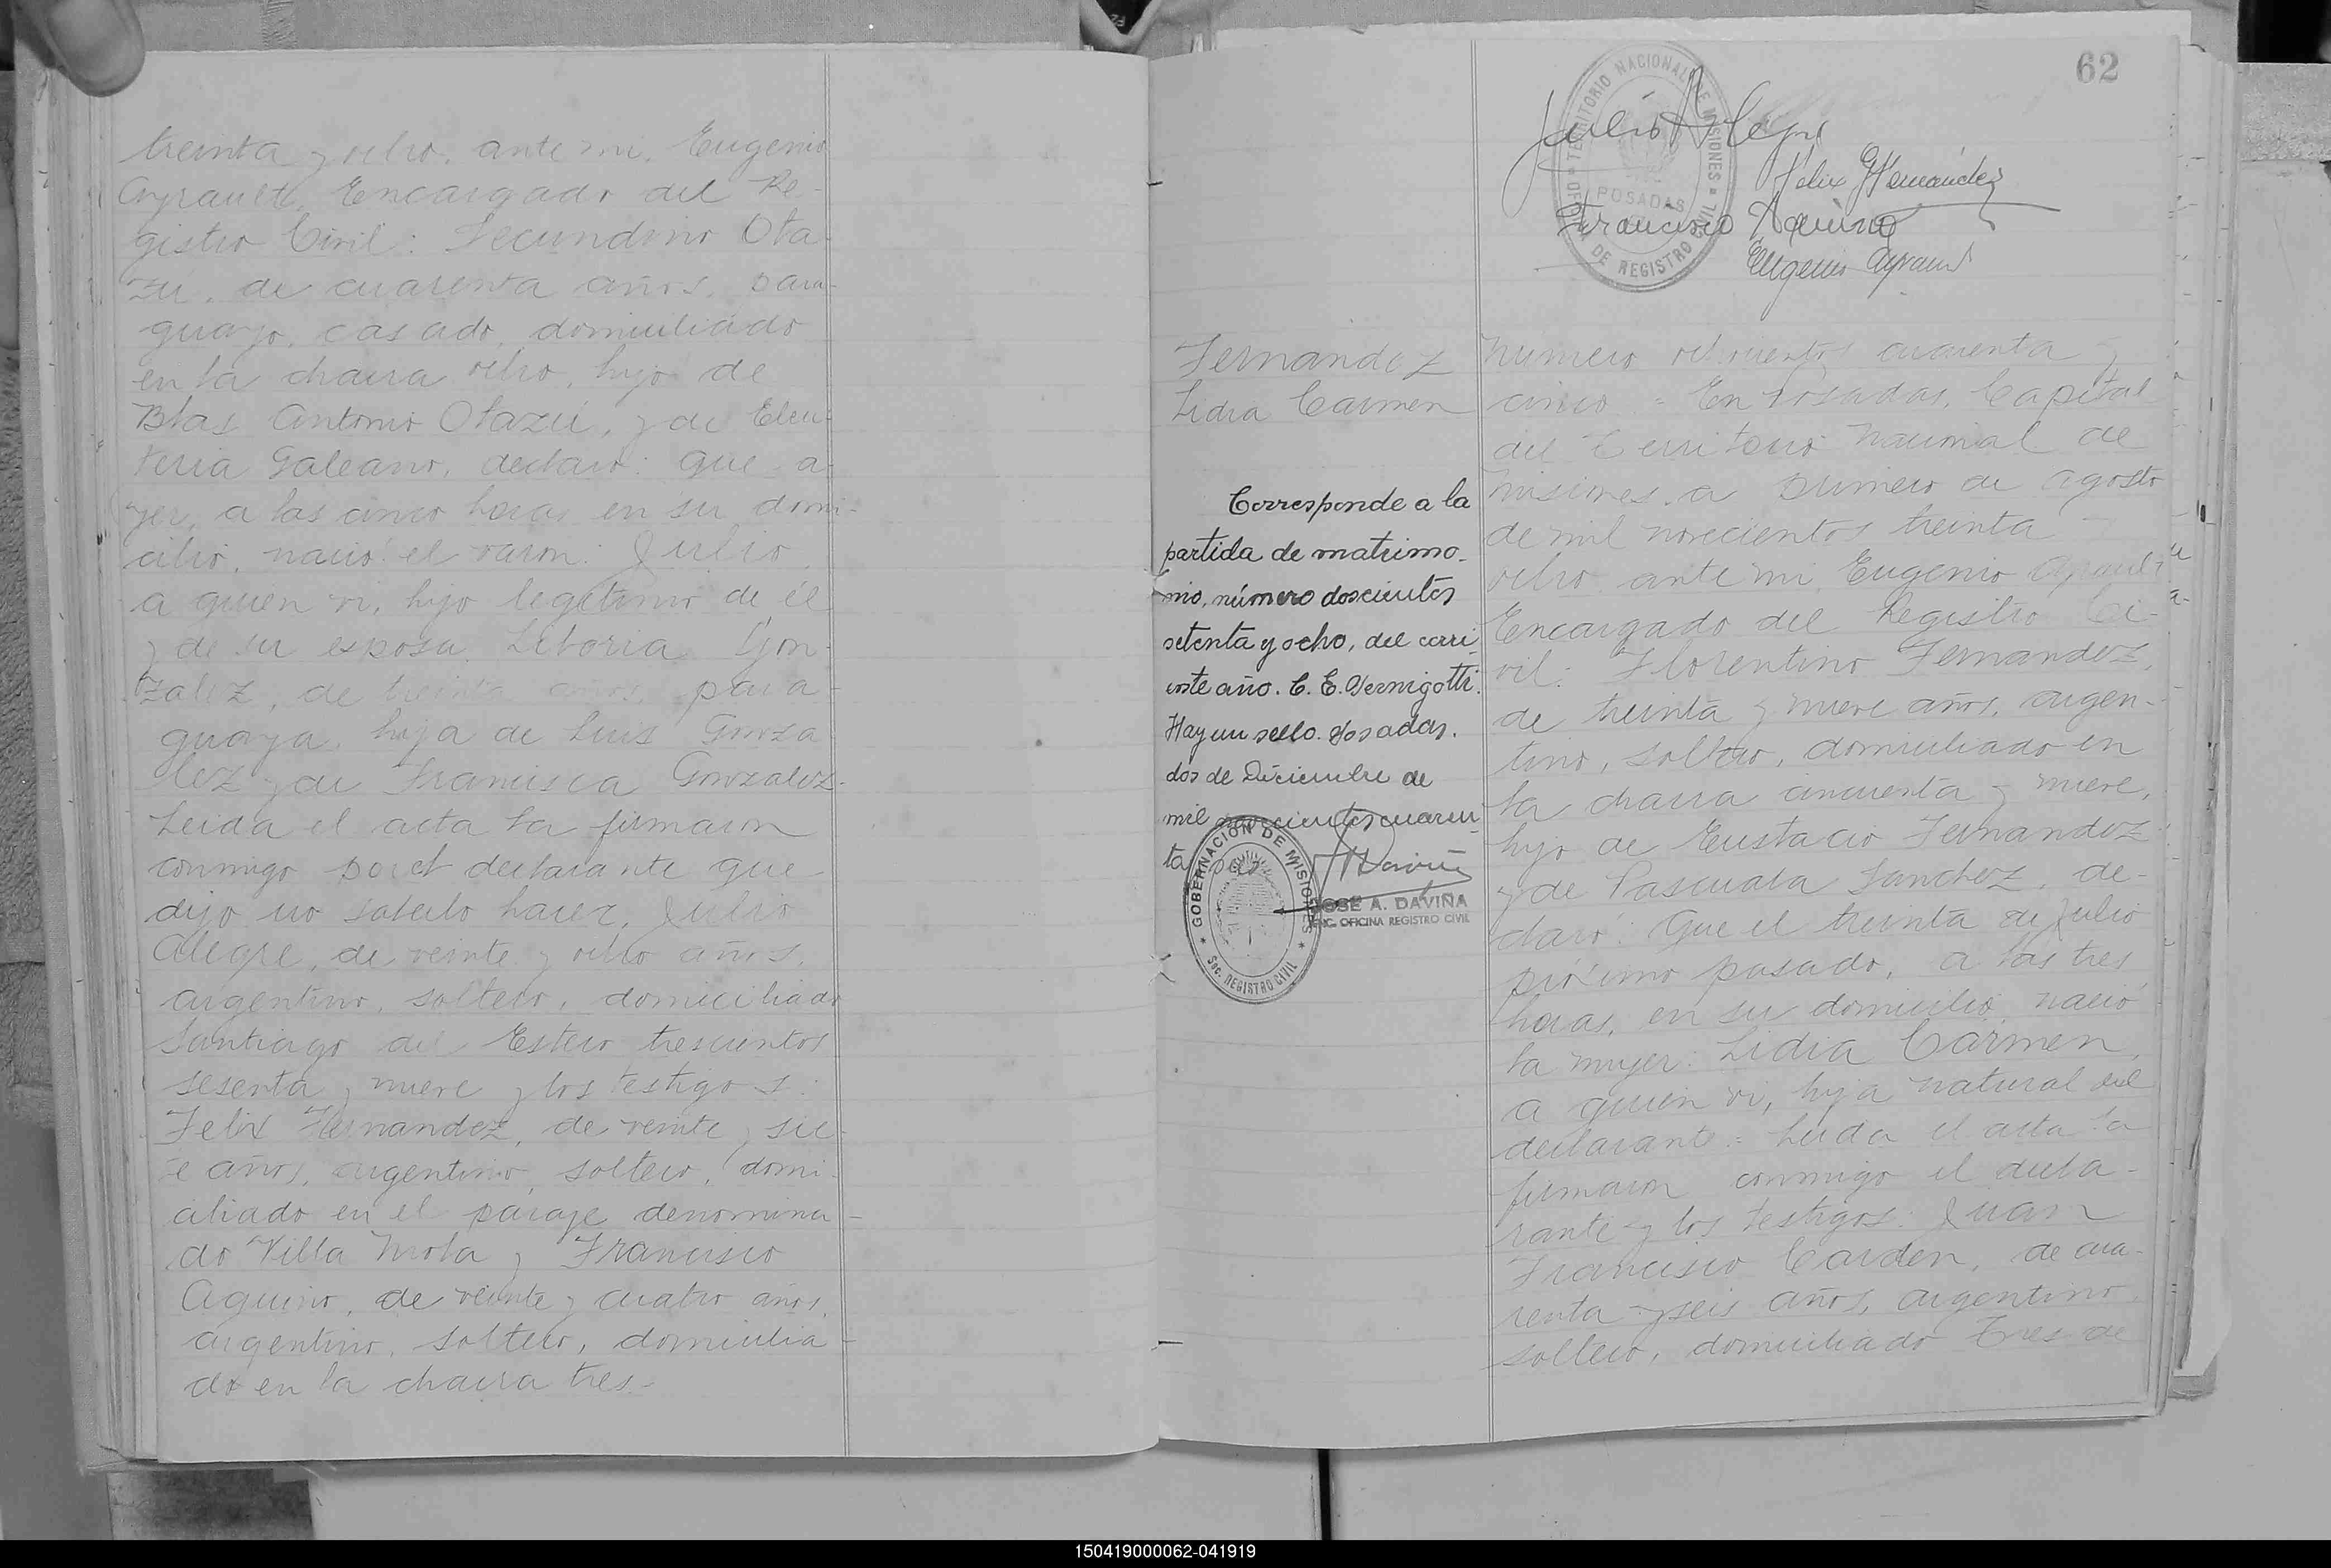 treinta y ocho, ante mi, Eugenio
Ayrault, Encargado del Re-
gistro Civil: Secundino Ota-
zú, de cuarenta años, para-
guayo, casado, domiciliado
en la chacra ocho, hijo de
Blas Antonio Otazú, y de Eleu-
teria Galeano, declaró: que a-
yer, a las cinco horas en su domi-
cilio, nació el varon: Julio,
a quien vi, hijo legitimo de él
y de su esposa Litoria Gon-
zalez, de treinta años, para-
guaya, hija de Luis Gonza
lez y de Francisca Gonzalez.-
Leida el acta la firmaron
conmigo por el declarante que
dijo no saberlo hacer, Julio
Alegre, de veinte y ocho años,
argentino, soltero, domiciliado
Santiago del Estero trescientos
sesenta y nueve y los testigos:
Felix Hernandez, de veinte y sie-
te años, argentino, soltero, domi-
ciliado en el paraje denomina-
do Villa Mota y Francisco
Aquino, de veinte y cuatro años,
argentino, soltero, domicilia-
do en la chacra tres.-
62
OFICINA DE REGISTRO CIVIL TERRITORIO NACIONAL DE MISIONES
POSADAS
Julio Alegre
Félix Hernández
Francisco Aquino
Eugenio Ayrault
Fernandez
Lidia Carmen
Corresponde a la
partida de matrimo-
nio, número doscientos
setenta y ocho, del corri
ente año. C. E. Vernigotti.
Hay un sello. Posadas,
dos de Diciembre de
mil novecientos cuaren
ta
GOBERNACIÓN DE MISIONES
Sec. REGISTRO CIVIL
JOSÉ A. DAVIÑA
ENC. OFICINA REGISTRO CIVIL
Numero ochocientos cuarenta y
cinco = En Posadas, Capital
del Territorio Nacional de
Misiones, a primero de agosto
de mil novecientos treinta
ocho ante mi Eugenio Ayrault
Encargado del Registro Ci-
vil: Florentino Fernandez,
de treinta y nueve años, argen-
tino, soltero, domiciliado en
la chacra cincuenta y nueve,
hijo de Eustacio Fernandez
y de Pascuala Sanchez, de-
claró: Que el treinta de Julio
próximo pasado, a las tres
horas, en su domicilio, nació
la mujer: Lidia Carmen,
a quien vi, hija natural del
declarante.= Leida el acta la
firmaron conmigo el decla-
rante y los testigos: Juan
Francisco Carden, de cua-
renta y seis años, argentino,
soltero, domiciliado Tres de
150419000062-041919